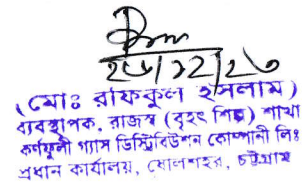 ২৬/১২/২৩
(মোঃ রফিকুল ইসলাম)
ব্যবস্থাপক, রাজস্ব (বৃহৎ শিল্প) শাখা
কর্ণফুলী গ্যাস ডিস্ট্রিবিউশন কোম্পানী লিঃ
প্রধান কার্যালয়, ষোলশহর, চট্টগ্রাম